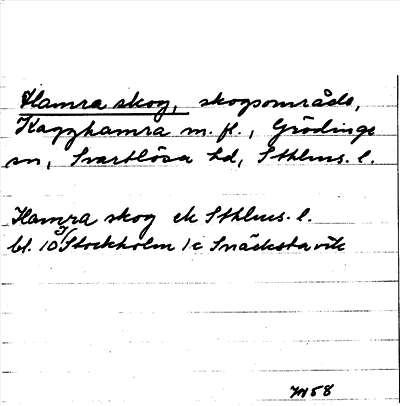 Hamra skog, skogsområde,
Kagghamra m. fl., Grödinge
sn, Svartlösa hd, Sthlms. l.
Hamra skog ek Sthlms. l.
bl. 10 J Stockholm 1c Snäckstavik
58